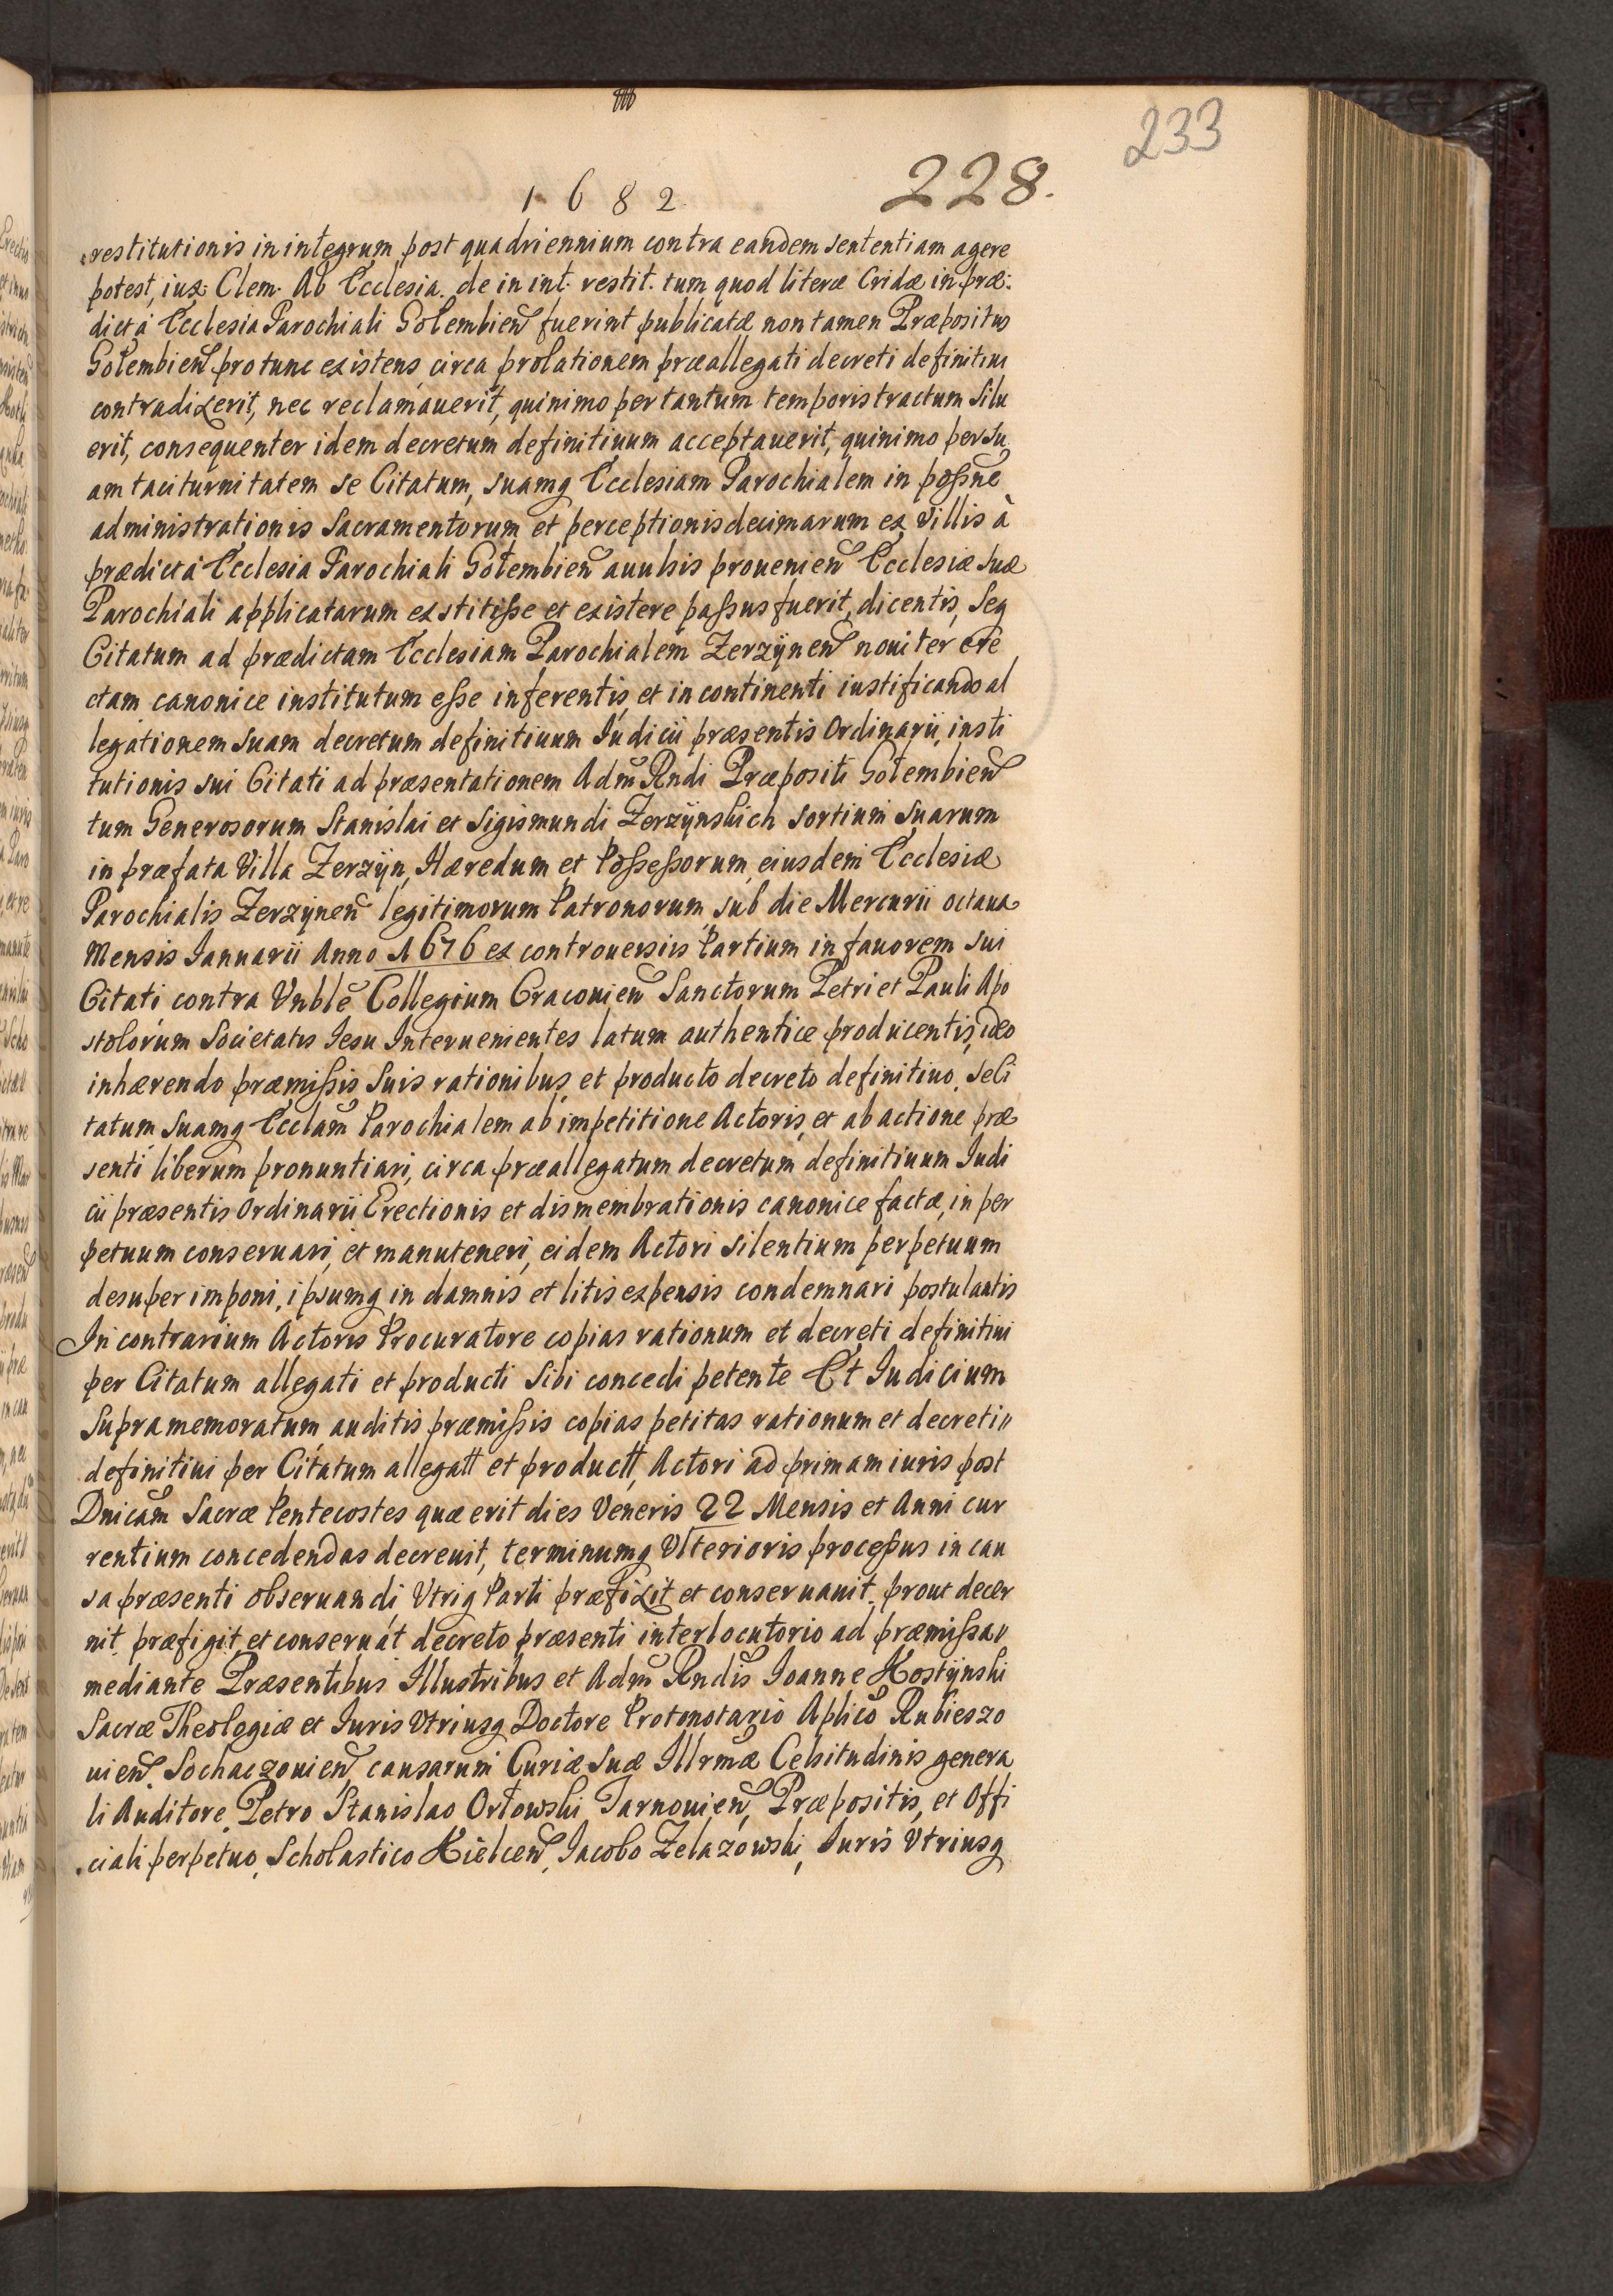 233
228.
1682
restitutionis in integrum post quadriennium contra eandem sententiam agere
potest, iux: Clem. Ab Ecclesia. de in int. restit. tum quod literæ Cridæ in præ:
dicta Ecclesia Parochiali Gołembien̄ fuerint publicatæ non tamen Præpositus
Gołembien̄ pro tunc existens, circa prolationem præallegati decreti definitiui
contradixerit, nec reclamauerit, quinimo per tantum temporis tractum silu
erit, consequenter idem decretum definitiuum acceptauerit, quinimo per su
am taciturnitatem se Citatum, suamq Ecclesiam Parochialem in poßne
administrationis Sacramentorum et perceptionis decimarum ex Villis à
prædicta Ecclesia Parochiali Gołembien̄ auulsis prouenien̄ Ecclesiæ suæ
Parochiali applicatarum exstitiße et existere paßus fuerit, dicentis, seq
Citatum ad prædictam Ecclesiam Parochialem Zerzÿnen̄ nouiter ere
ctam canonice institutum eße inferentis, et in continenti iustificando al
legationem suam decretum definitiuum Iudicii præsentis Ordinarii, insti
tutionis sui Citati ad præsentationem Adm̄ Rndi Præpositi Gołembien̄
tum Generosorum Stanislai et Sigismundi Zerzÿnskich sortium suarum
in præfata Villa Zerzÿn, Hæredum et Poßeßorum, eiusdem Ecclesiæ
Parochialis Zerzÿnen̄ legitimorum Patronorum, sub die Mercurii octaua
Mensis Ianuarii Anno 1676 ex controuersiis Partium in fauorem sui
Citati, contra Vnblē Collegium Cracouien̄ Sanctorum Petri et Pauli Apo
stolorum Societatis Iesu Interuenientes latum authentice producentis, ideo
inhærendo præmißis suis rationibus, et producto decreto definitiuo, se Ci
tatum suamq Ecclām Parochialem ab impetitione Actoris, et ab actione præ
senti liberum pronuntiari, circa præallegatum decretum definitiuum Iudi
cii præsentis Ordinarii Erectionis et dismembrationis canonice factæ, in per
petuum conseruari, et manuteneri, eidem Actori silentium perpetuum
desuper imponi, ipsumq in damnis et litis expensis condemnari postulantis
In contrarium Actoris Procuratore copias rationum et decreti definitiui
per Citatum allegati et producti sibi concedi petente Et Iudicium
supramemoratum auditis præmißis copias petitas rationum et decreti
definitiui per Citatum allegatt et productt, Actori ad primam iuris post
Dnicām Sacræ Pentecostes quæ erit dies Veneris 22 Mensis et Anni cur
rentium concedendas decreuit, terminumq Vlterioris proceßus in cau
sa præsenti obseruandi Vtriq Parti præfixit et conseruauit, prout decer
nit, præfigit, et conseruat decreto præsenti interlocutorio ad præmißa
mediante Præsentibus Illustribus et Adm̄ Rndis Ioanne Hostÿnski
Sacræ Theologiæ et Iuris Vtriusq Doctore Protonotario Aplicō Rubieszo
uien̄, Sochaczouien̄, causarum Curiæ suæ Illrmæ Celsitudinis genera
li Auditore, Petro Stanislao Orłowski, Tarnouien̄, Præpositis, et Offi
ciali perpetuo, Scholastico Kielcen̄, Iacobo Zelazowski, Iuris Vtriusq